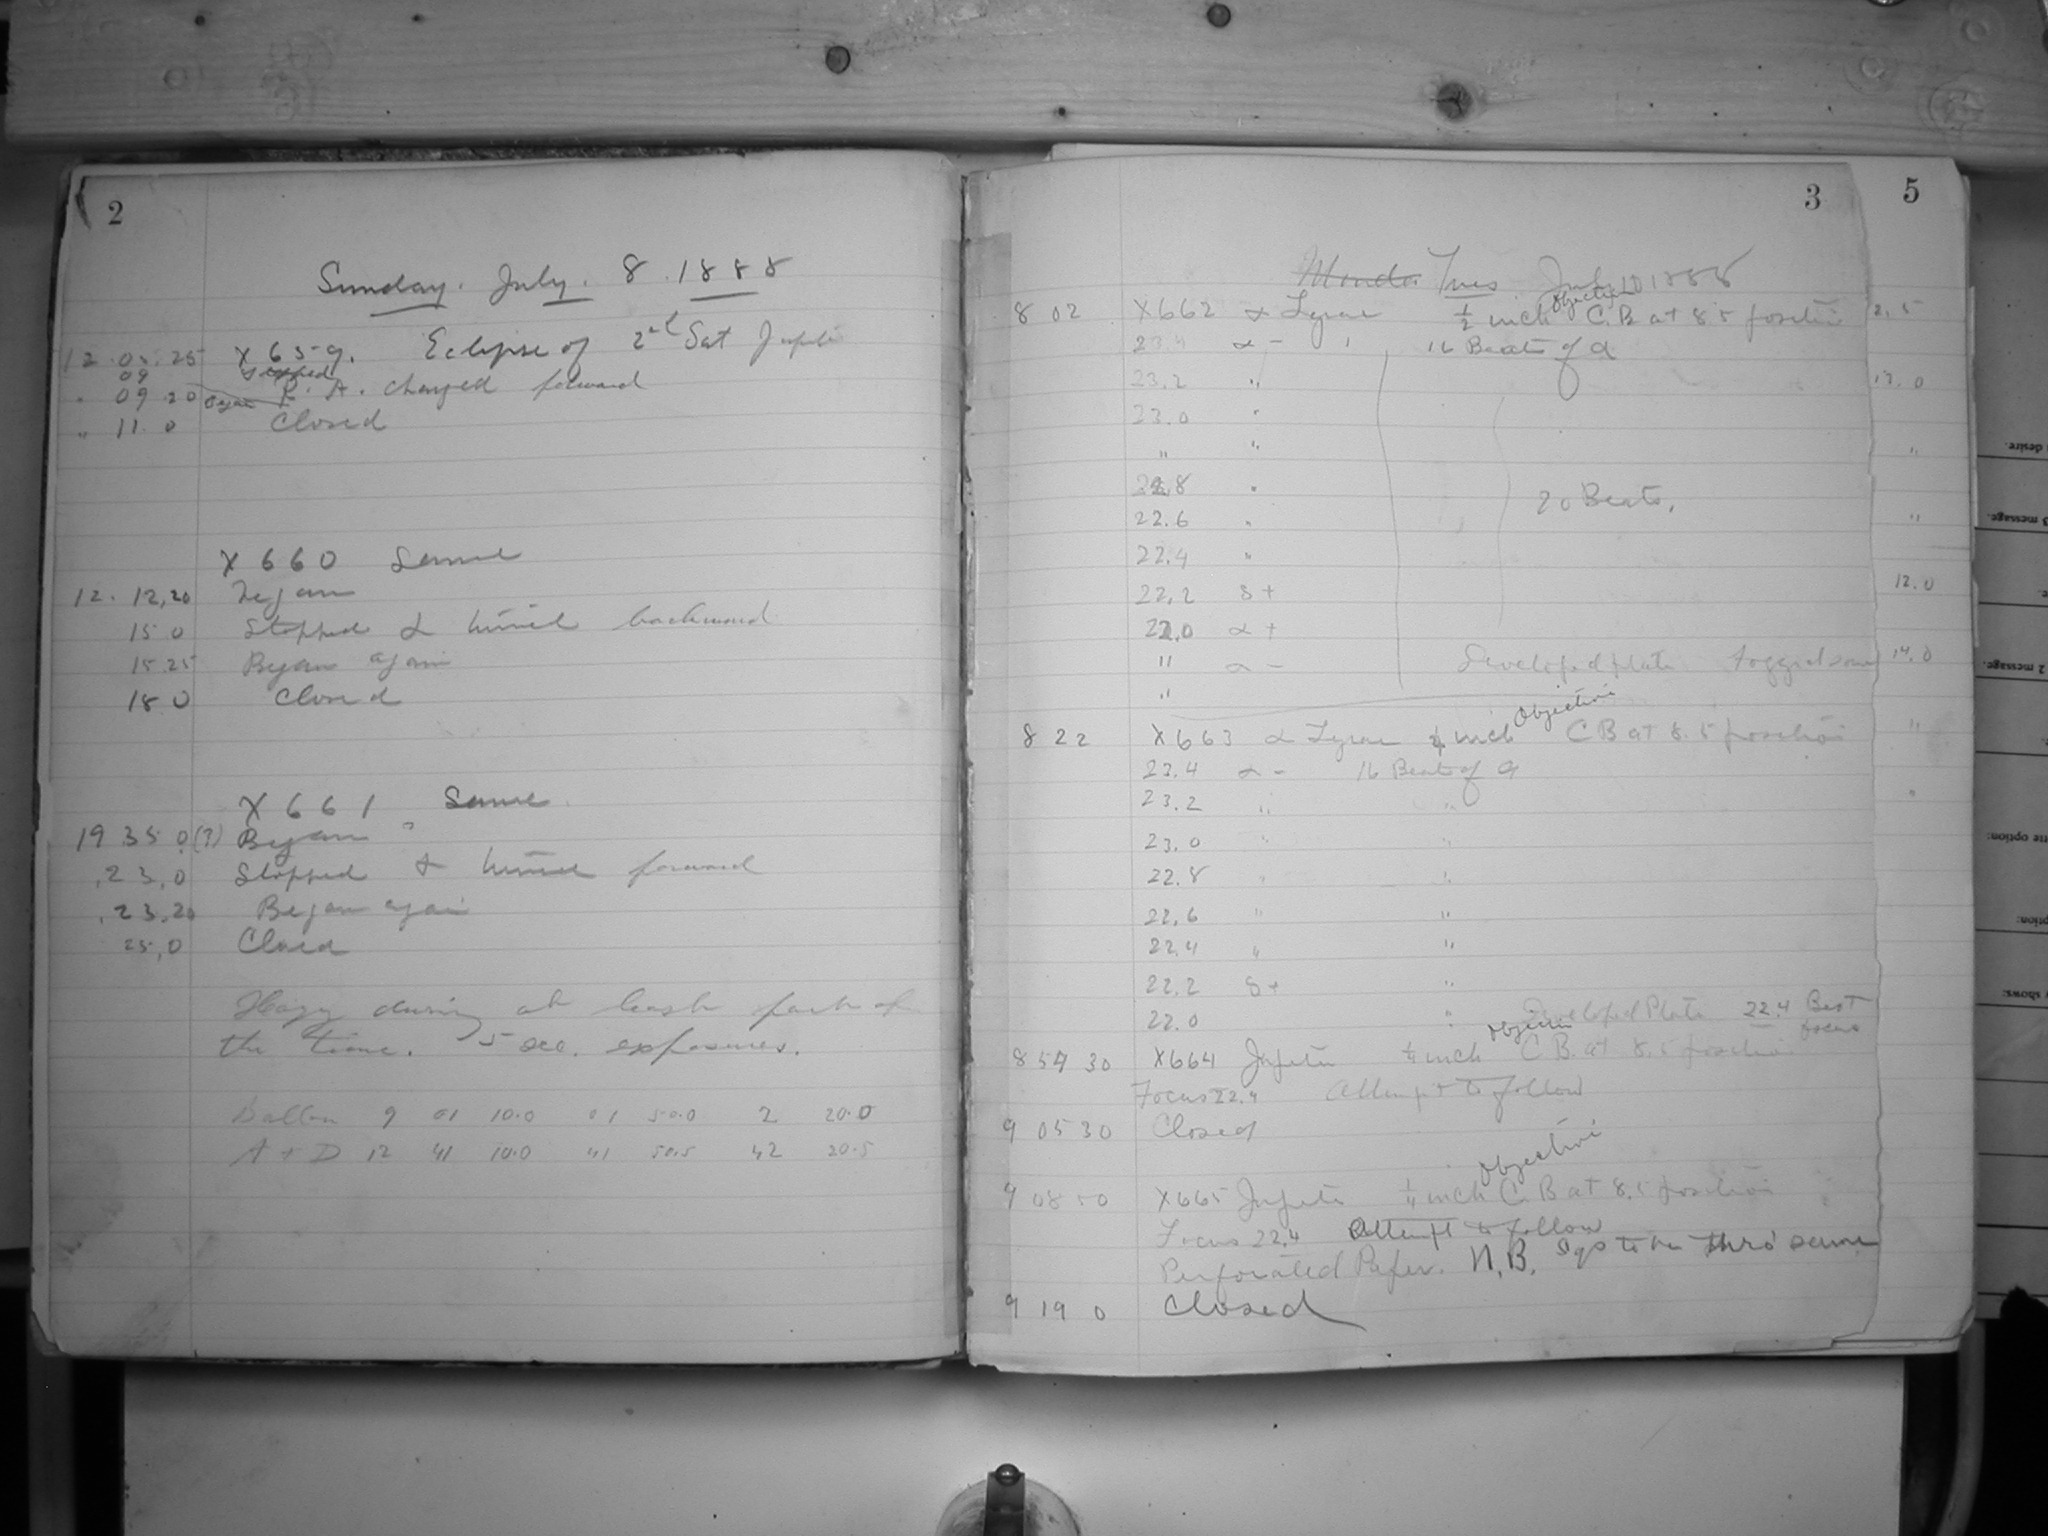 2
Sunday. July. 8. 1888
12 05 25 X 659. Eclipse of 2nd Sat Jupiter
09 Stopped
" 09 20 Began R. A. changed forward
" 11 0 Closed
X 660 Same
12. 12,20 Began
15 0 Stopped & turned backward
15 25 Began again
18 0 Closed
X 661 Same
19 35 0(?) Began
,23,0 Stopped & turned forward
,23,20 Began again
25,0 Closed
Hazy during at least part of
the time. 5 sec. exposures.
9 01 10.0 01 50.0 2 20.0
A + D 12 41 10.0 41 50.5 42 20.5
3
Monda Tues. July 10 1888
8 02 X662 α Lyrae ½ inch Objective C.B at 8.5 position
23.4 α - 16 Beats of α
23.2 "
23.0 "
" "
22.8 "
22.6 " 20 Beats,
22.4 "
22.2 8 +
22.0 α +
" α - Developed plate fogged some
"
8 22 X663 α Lyrae ¼ inch Objective C B at 8.5 position
23.4 α - 16 Beats of α
23.2 " "
23.0 " "
22.8 " "
22.6 " "
22.4 " "
22.2 8 + "
22.0 " Developed Plate 22.4 Best focus
8 59 30 X664 Jupiter ¼ inch Objective C B. at 8.5 position
Focus 22.4 Attempt to follow
9 05 30 Closed
9 08 50 X665 Jupiter ¼ inch Objective C. B at 8.5 position
Focus 22.4 Attempt to follow
Perforated Paper. N.B. to be thro' same
9 19 0 Closed
5
2.5
12.0
"
"
12.0
14.0
"
"
desire.
3 message.
2 message.
option:
ption:
shows: